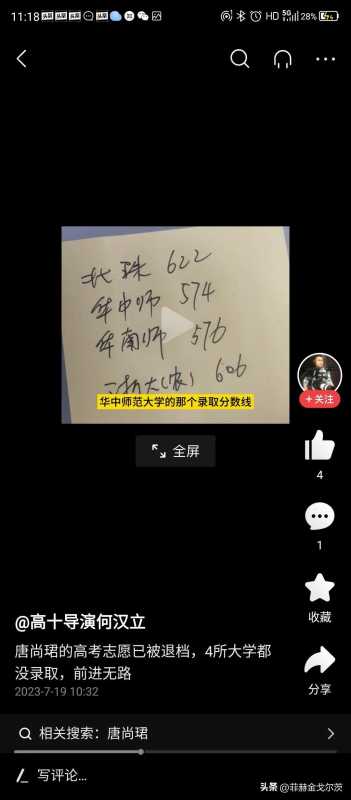 11:18 头条 头条 头条 头条 HD 5G 28%
北珠 622
华中师 574
华南师 576
浙大(农) 606
华中师范大学的那个录取分数线
全屏
+关注
4
1
收藏
@高十导演何汉立
唐尚珺的高考志愿已被退档，4所大学都
没录取，前进无路
2023-7-19 10:32
分享
相关搜索：唐尚珺
写评论...
头条 @菲赫金戈尔茨